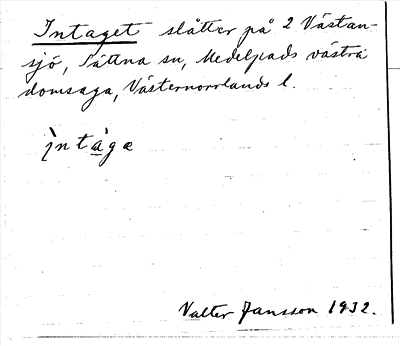 Intaget slåtter på 2 Västan-
sjö, Sättna sn, Medelpads västra
domsaga, Västernorrlands l.
ìntàgæ
Valter Jansson 1932.